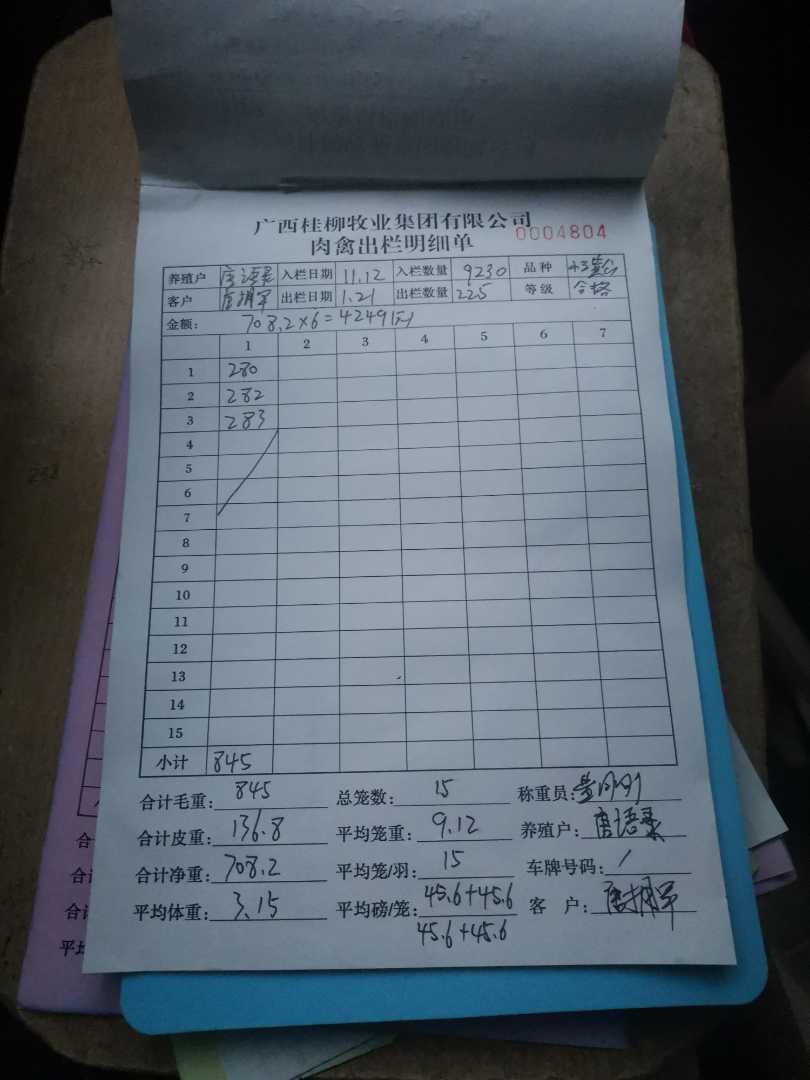 广西桂柳牧业集团有限公司
肉禽出栏明细单 0004804
养殖户 唐 入栏日期 11.12 入栏数量 9230 品种
客户 唐 出栏日期 1.21 出栏数量 225 等级 合格
金额: 708.2×6=4249
1 2 3 4 5 6 7
1 280
2 282
3 283
4
5
6
7
8
9
10
11
12
13
14
15
小计 845
合计毛重: 845 总笼数: 15 称重员:
合计皮重: 136.8 平均笼重: 9.12 养殖户: 唐语
合计净重: 708.2 平均笼/羽: 15 车牌号码: /
平均体重: 3.15 平均磅/笼: 45.6+45.6 客 户: 唐
45.6+45.6